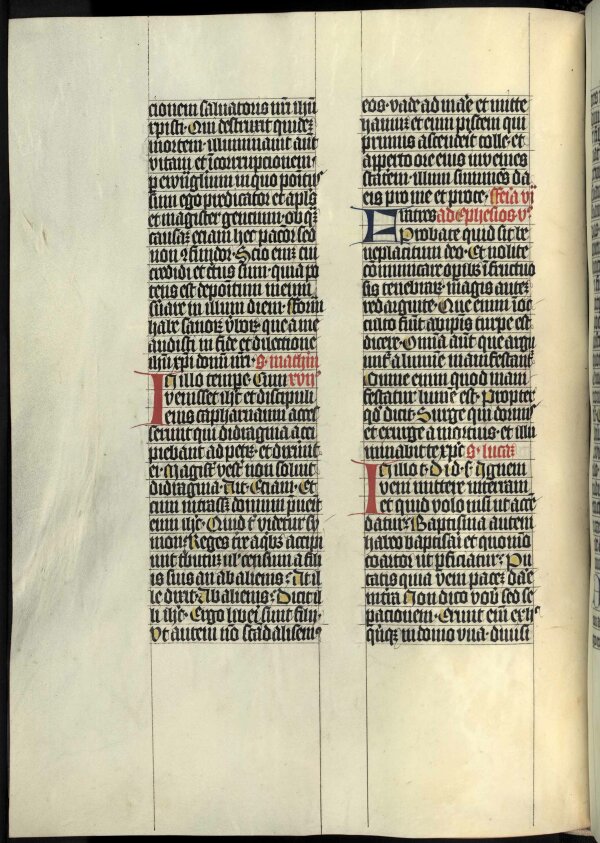 cionem saluatoris nr̄i ih̄u
xpisti· Qui destruxit quideꝫ
mortem· illuminauit aut̄
vitam et īcorrupcionem·
p ewāgelium in quo positꝰ
sum ego predicator et apl̄s
et magister gencium· ob qᷓ
causaꝫ eciam hec pacior sed
non ꝯfundor· Scio enī cui
credidi et c̄tus sum· quia po
tens est depositum meum
s̄uare in illum diem· fformā
habe sanoꝝ v̄boꝝ· que a me
audisti in fide et dilectione
ih̄u xp̄i domī nr̄i· S· mathm̄
In illo tempe· Cum xvii
venisset ih̄s et discipuli
eius capharnaum acces
serunt qui didragma acci
piebant ad petrꝫ· et dixerūt
ei· Magist̄ vest̄ non soluit
didragma· Ait· Eciam· Et
cum intrasset domum p̄uenit
eum ih̄s· Quid t̄ videtur sy
mon· Reges tr̄e a qbꝫ accipi
unt tributū ul' censum a fili
is suis an ab alienis· At il
le dixit· Ab alienis· Dicit il
li ih̄s· Ergo liberi sunt filii·
Vt autem nō scādalisemꝰ
eos· vade ad mare et mitte
hamuꝫ et eum piscem qui
primus ascenderit tolle· et
apperto ore eius inuenies
staterem· illum sumēs da
eis pro me et pro te· fferia vi
Fratres ad Ephesios v·
Probate quid sit be
neplacitum deo· Et nolite
cōmunicare opibꝫ īfructuo
sis tenebraꝝ· magis auteꝫ
redarguite· Que enim ī oc
culto fiūt ab ipis turpe est
dicere· Omnia aūt que argu
unt᷑ a lumīe manifestant᷑
Omne enim quod mani
festatur lumē est· Propter
qd̄ dicit· Surge qui dormis
et exurge a mortuis· et illu
minabit te xp̄c· S· lucaꝫ
In illo t̄· D· ih̄s· d· s· Ignem
veni mittere in terram
et quid volo nisi ut accē
datur· Baptisma autem
habeo baptisari et quomo
coartor usqꝫ dū pficiatur· Pu
tatis quia veni paceꝫ dare
in trā· Non dico vob̄· sed se
paracionem· Erunt enī ex hͦ
qnqꝫ in domo vna diuisi